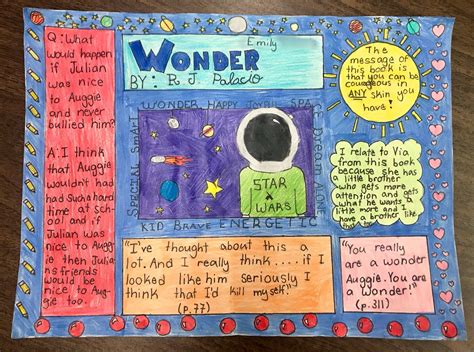 Q: What
would happen
if Julian
was nice
to Auggie
and never
bullied him?
A: I think
that Auggie
wouldn't had
had such a hard
time at
school and if
Julian was
nice to Auggie
then Julians
friends
would be
nice to Aug-
gie too.
Emily
WONDER
BY: R.J. Palacio
WONDER HAPPY JOYFUL
SPECIAL SMART
ALONE
STAR
WARS
KID BRAVE ENERGETIC
The
message of
this book is
that you can be
courageous in
ANY skin
you
have!
I relate to Via
from this book
because she has
a little brother
who gets
more attention
and gets
what he wants a
little more and I
have a brother like
that
"I've thought about this a
lot. And I really think....if I
looked like him seriously I
think that I'd kill myself."
(p.77)
"You really
are a wonder
Auggie. You are
a Wonder!"
(p.311)